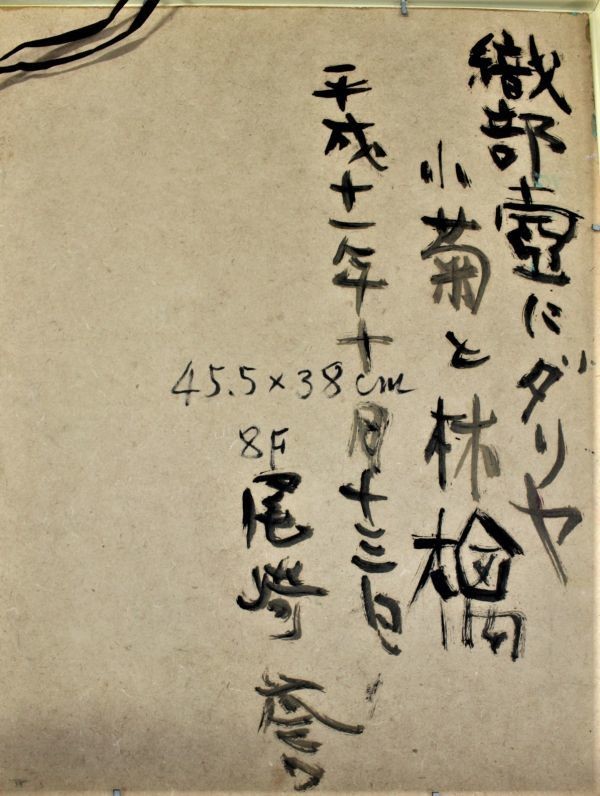 織部壺にダリヤ
小菊と林檎
平成十一年十月十三日
45.5×38cm
8F
尾崎